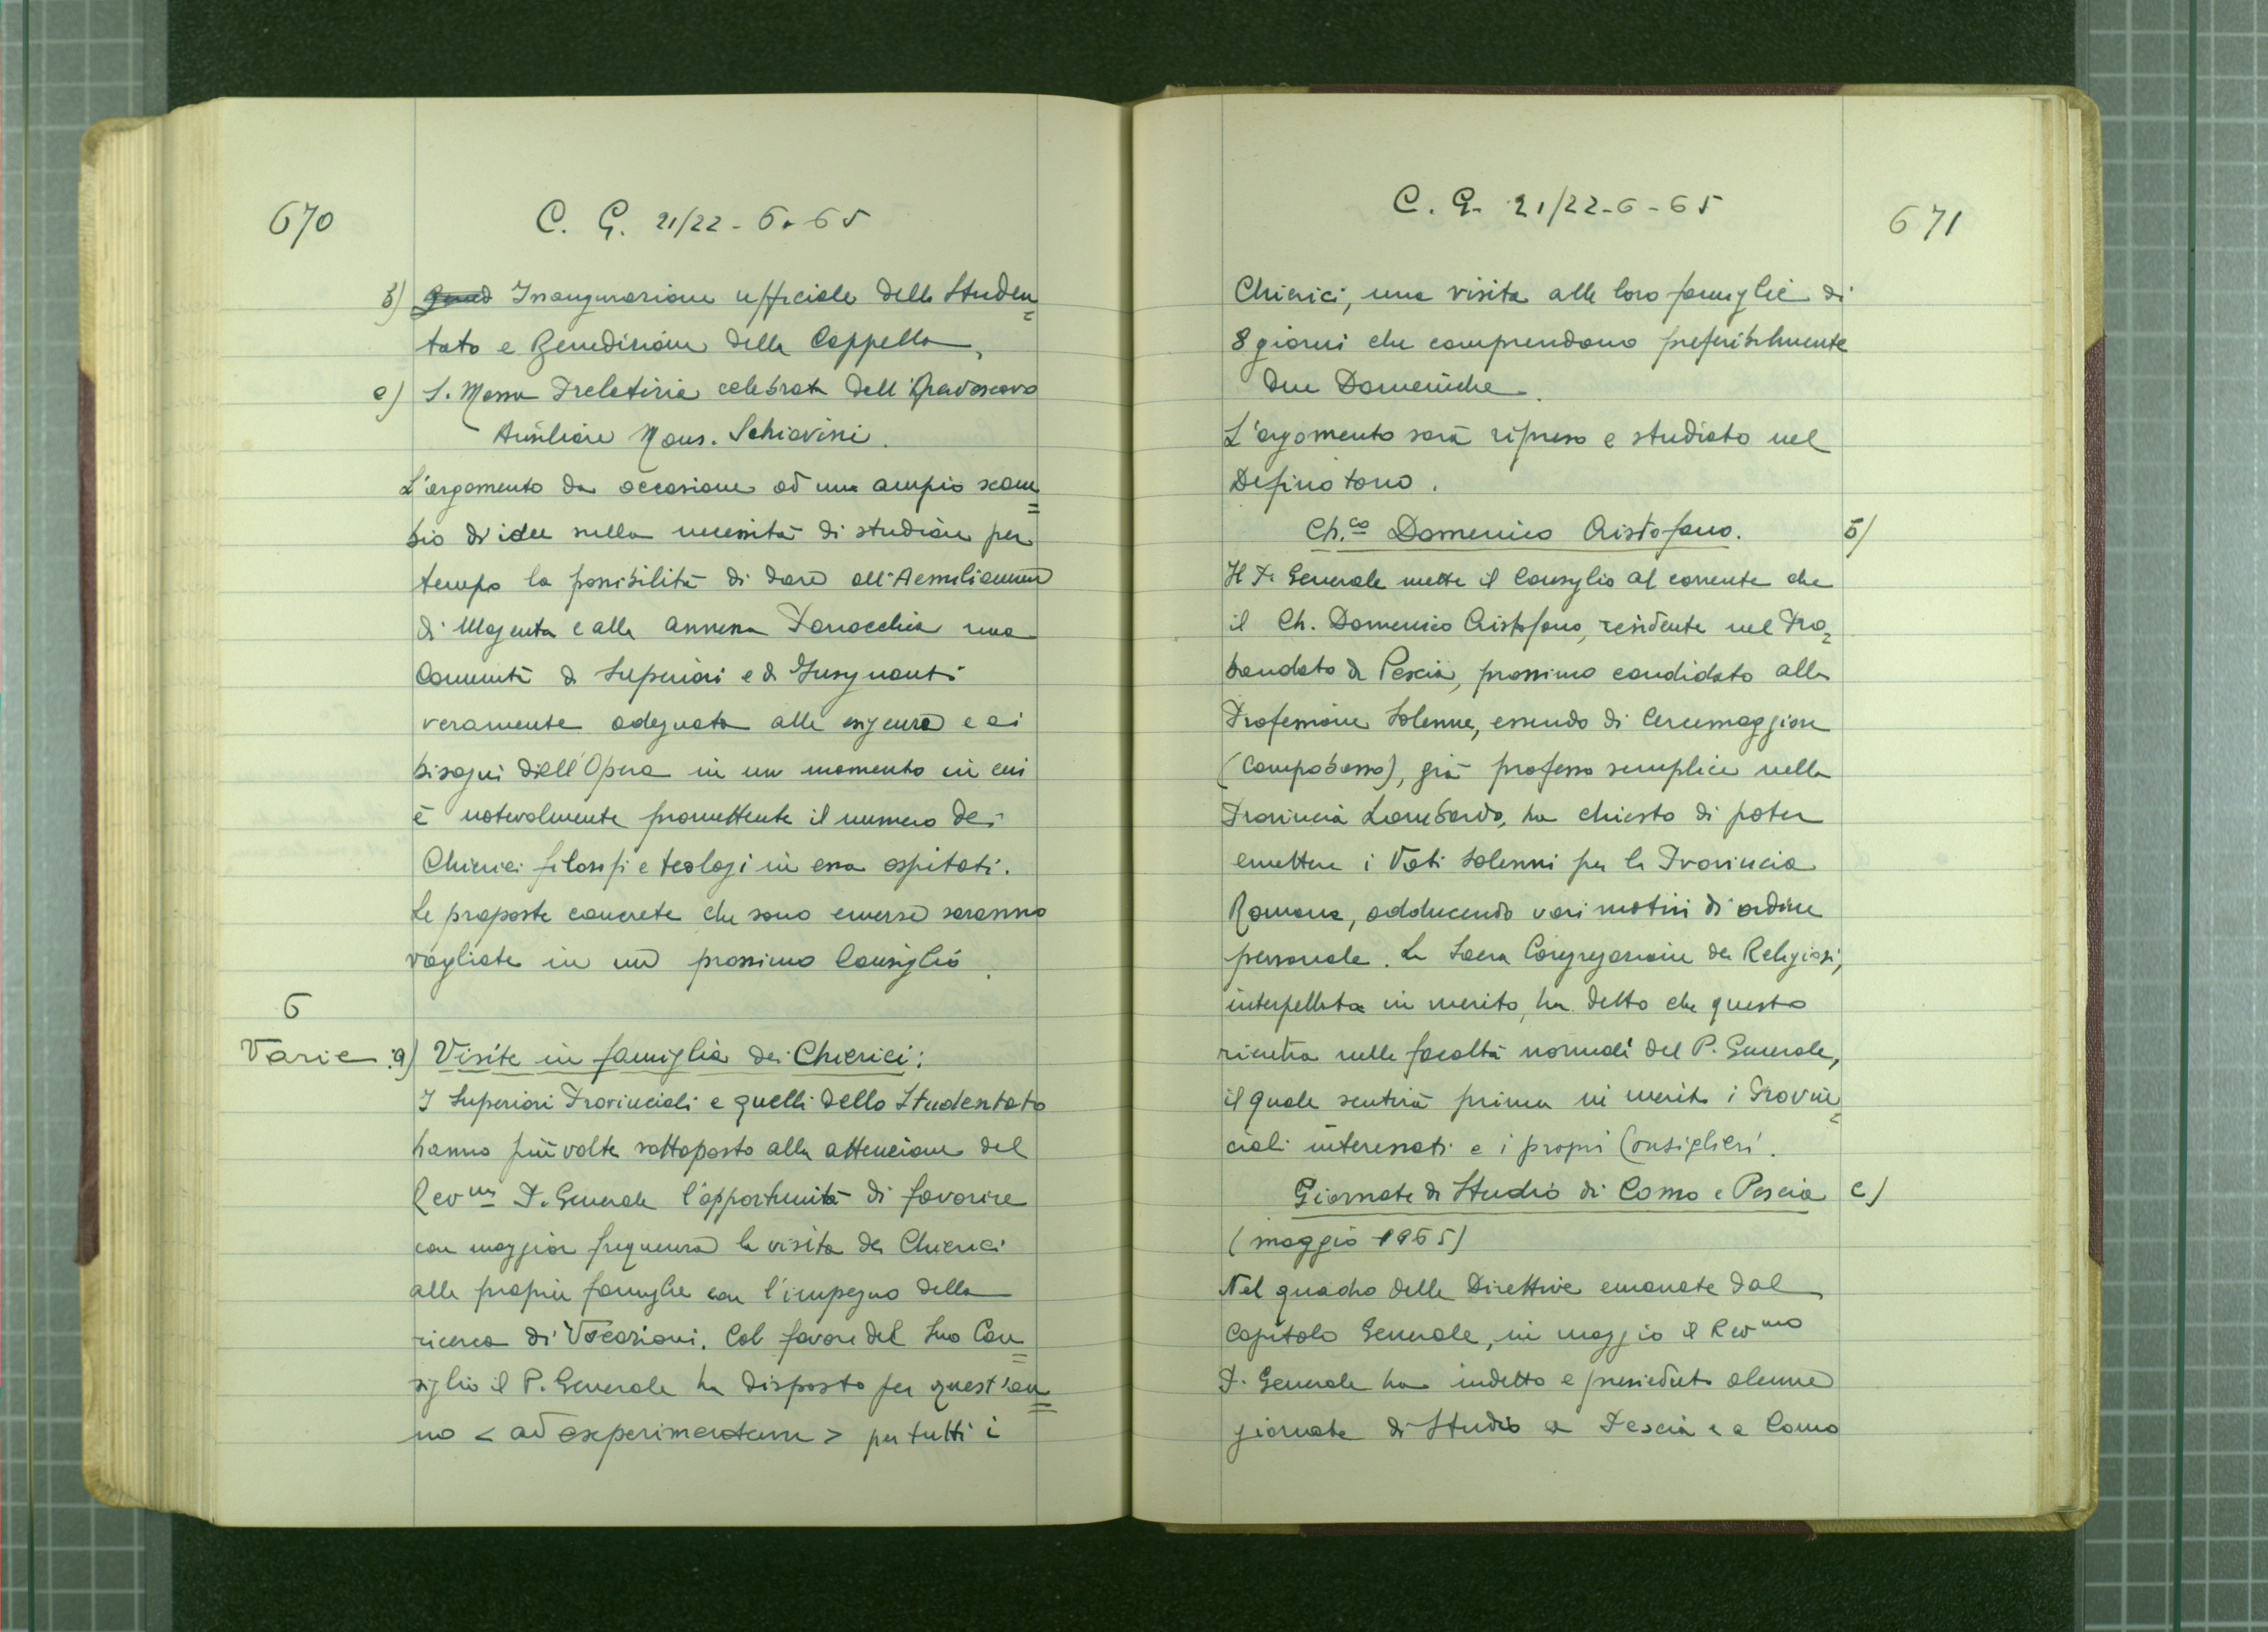 670
C. G. 21/22 - 6 - 65
b) Inaugurazione ufficiale dello Studen=
tato e Benedizione della Cappella,
c) S. Messa Prelatizia celebrata dall'Arcivescovo
Ausiliare Mons. Schiavini.
L'argomento da occasione ad un ampio scam=
bio di idee sulla necessità di studiare per
tempo la possibilità di dare all'Aemilianum
di Magenta e alla annessa Parrocchia una
Comunità di Superiori e di Insegnanti
veramente adeguata alle esigenze e ai
bisogni dell'Opera in un momento in cui
è notevolmente promettente il numero dei
Chierici filosofi e teologi in essa ospitati.
Le proposte concrete che sono emerse saranno
vagliate in un prossimo Consiglio.
6
Varie: a) Visite in famiglia dei Chierici:
I Superiori Provinciali e quelli dello Studentato
hanno più volte sottoposto alla attenzione del
Rev.mo P. Generale l'opportunità di favorire
con maggior frequenza la visita dei Chierici
alle proprie famiglie con l'impegno della
ricerca di Vocazioni. Col favore del Suo Con=
siglio il P. Generale ha disposto per quest'an=
no < ad experimentum > per tutti i
C. G. 21/22-6-65
671
Chierici, una visita alle loro famiglie di
8 giorni che comprendano preferibilmente
due Domeniche.
L'argomento sarà ripreso e studiato nel
Definitorio.
Ch.co Domenico Cristofano. b)
Il P. Generale mette il Consiglio al corrente che
il Ch. Domenico Cristofano, residente nel Pro=
bandato di Pescia, prossimo candidato alla
Professione Solenne, essendo di Cercemaggiore
(Campobasso), già professo semplice nella
Provincia Lombarda, ha chiesto di poter
emettere i Voti solenni per la Provincia
Romana, adducendo vari motivi di ordine
personale. La Sacra Congregazione dei Religiosi,
interpellata in merito, ha detto che questo
rientra nelle facoltà normali del P. Generale,
il quale sentirà prima in merito i Provin=
ciali interessati e i propri Consiglieri.
Giornate di Studio di Como e Pescia c)
(maggio 1965)
Nel quadro delle Direttive emanate dal
Capitolo Generale, in maggio il Rev.mo
P. Generale ha indetto e presieduto alcune
giornate di Studio a Pescia e a Como